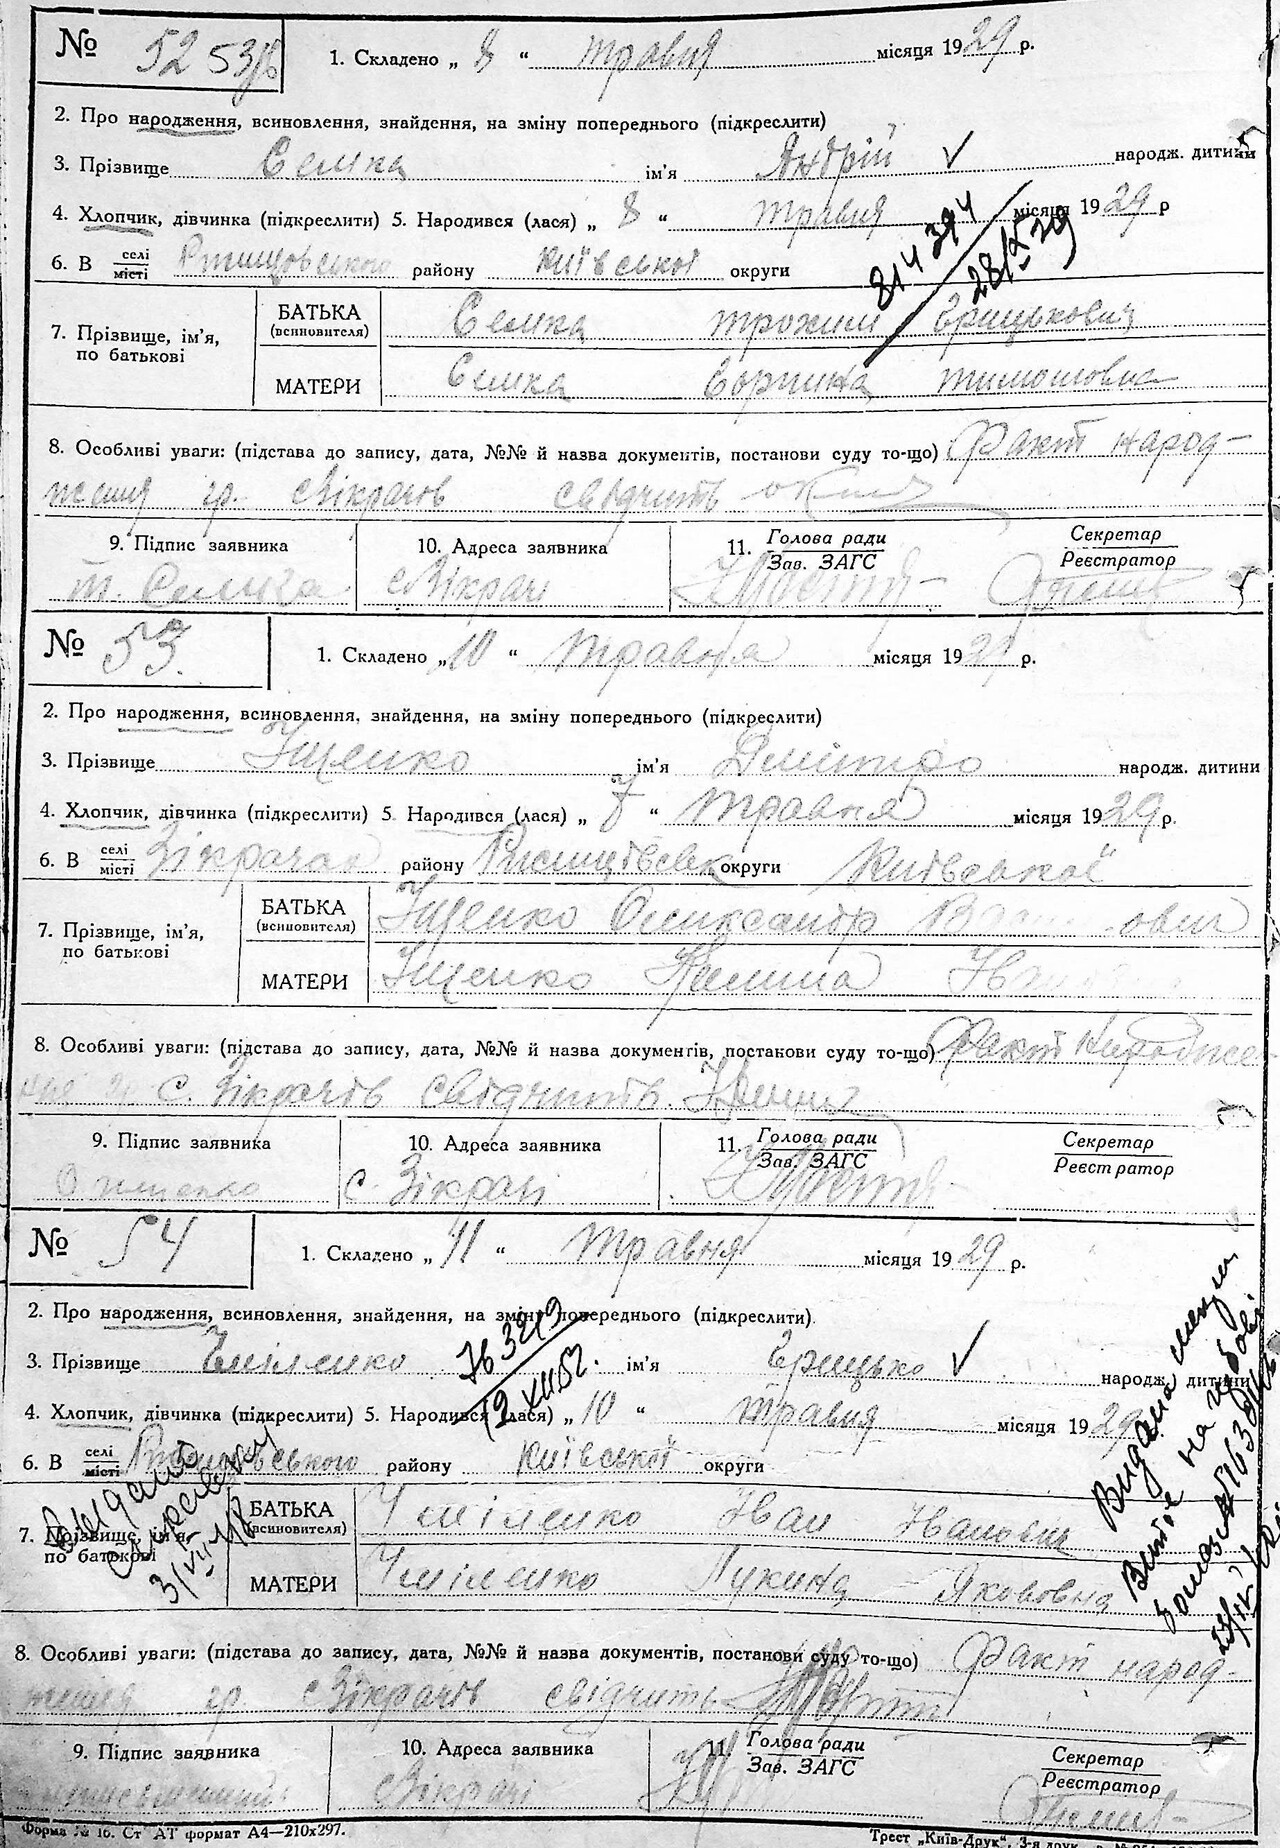 № 52 53
1. Складено „ 8 “ травня місяця 1929 р.
2. Про народження, всиновлення, знайдення, на зміну попереднього (підкреслити)
3. Прізвище Семка ім'я Андрій народж. дитини
4. Хлопчик, дівчинка (підкреслити) 5. Народився (лася) „ 8 “ травня місяця 1929 р
6. В селі місті Ржищовського району Київської округи
814394
28/IX 29
7. Прізвище, ім'я, по батькові
БАТЬКА (всиновителя) Семка Трохим Грицькович
МАТЕРИ Семка Горпина Тимошовна
8. Особливі уваги: (підстава до запису, дата, №№ й назва документів, постанови суду то-що) Факт народ-
ження гр. Зікрачів свідчить
9. Підпис заявника 10. Адреса заявника 11. Голова ради Зав. ЗАГС Секретар Реєстратор
т. Семка с Зікрачі
№ 53.
1. Складено „ 10 “ травня місяця 1929 р.
2. Про народження, всиновлення, знайдення, на зміну попереднього (підкреслити)
3. Прізвище Іщенко ім'я Дмітро народж. дитини
4. Хлопчик, дівчинка (підкреслити) 5. Народився (лася) „ 7 “ травня місяця 1929 р.
6. В селі місті Зікрачах району Ржищівськ округи Київської
7. Прізвище, ім'я, по батькові
БАТЬКА (всиновителя) Іщенко Олександр
МАТЕРИ Іщенко
8. Особливі уваги: (підстава до запису, дата, №№ й назва документів, постанови суду то-що) Факт народже-
ння гр с. Зікрачів свідчить
9. Підпис заявника 10. Адреса заявника 11. Голова ради Зав. ЗАГС Секретар Реєстратор
О Іщенко с. Зікрачі
№ 54
1. Складено „ 11 “ травня місяця 1929 р.
2. Про народження, всиновлення, знайдення, на зміну попереднього (підкреслити).
3. Прізвище Хміленко ім'я Грицько народж. дитини
4. Хлопчик, дівчинка (підкреслити) 5. Народився (лася) „ 10 “ травня місяця 1929
6. В селі місті Ржищовського району Київської округи
7. Прізвище, ім'я, по батькові
БАТЬКА (всиновителя) Хміленко Іван Іванович
МАТЕРИ Хміленко Лукина Якововна
8. Особливі уваги: (підстава до запису, дата, №№ й назва документів, постанови суду то-що) Факт народ-
ження гр. Зікрачів свідчить
9. Підпис заявника 10. Адреса заявника 11. Голова ради Зав. ЗАГС Секретар Реєстратор
с Зікрачі
Форма № 16. Ст АТ формат А4—210x297.
Трест „Київ-Друк“,